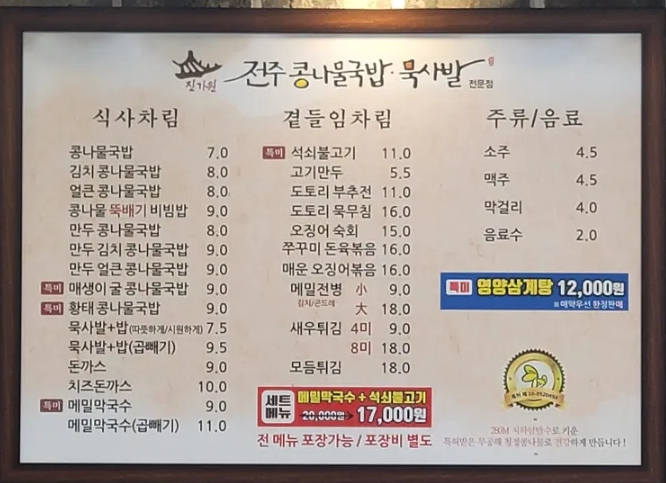 진가원
전주 콩나물국밥·묵사발 전문점
식사차림
콩나물국밥 7.0
김치 콩나물국밥 8.0
얼큰 콩나물국밥 8.0
콩나물 뚝배기 비빔밥 9.0
만두 콩나물국밥 8.0
만두 김치 콩나물국밥 9.0
만두 얼큰 콩나물국밥 9.0
특미 매생이 굴 콩나물국밥 9.0
특미 황태 콩나물국밥 9.0
묵사발+밥(따뜻하게/시원하게) 7.5
묵사발+밥(곱빼기) 9.5
돈까스 9.0
치즈돈까스 10.0
특미 메밀막국수 9.0
메밀막국수(곱빼기) 11.0
곁들임차림
특미 석쇠불고기 11.0
고기만두 5.5
도토리 부추전 11.0
도토리 묵무침 16.0
오징어 숙회 15.0
쭈꾸미 돈육볶음 16.0
매운 오징어볶음 16.0
메밀전병 小 9.0
김치/곤드레 大 18.0
새우튀김 4미 9.0
8미 18.0
모듬튀김 18.0
세트메뉴 메밀막국수 + 석쇠불고기
20,000원 17,000원
전 메뉴 포장가능 / 포장비 별도
주류/음료
소주 4.5
맥주 4.5
막걸리 4.0
음료수 2.0
특미 영양삼계탕 12,000원
※ 예약우선 한정판매
280M 지하암반수로 키운
특허받은 무공해 청정콩나물로 건강하게 만듭니다!